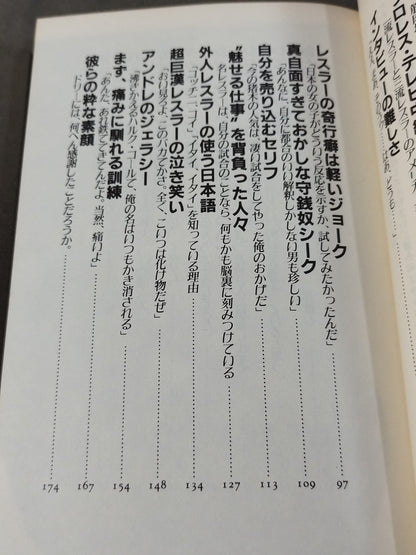 プロレス・テレビ
インタビューの難しさ
レスラーの奇行癖は軽いジョーク
「日本の女の子がどういう反応を示すか、試してみたかったんだ」
97
真面目すぎておかしな守銭奴シーク
「あんなに、自分に都合のいい解釈しかしない男も珍しい」
109
自分を売り込むセリフ
「今の猪木の人気は、凄い試合をしてやった俺のおかげだ」
113
“魅せる仕事”を背負った人々
名レスラーは、自分の試合のことなら、何もかも脳裏に刻みつけている
127
外人レスラーの使う日本語
「コッチニ、コイ」「イタイ、イタイ」を知っている理由
134
超巨漢レスラーの泣き笑い
「おい見ろよ、このバカでかさ。全く、こいつは化け物だぜ」
148
アンドレのジェラシー
「沸きかえるハルク・コールで、俺の名はいつもかき消される」
154
まず、痛みに馴れる訓練
「あんた、あの鉄どこできてんだよ。当然、痛いよ」
167
彼らの粋な素顔
ドリーには、何べん感謝したことだろうか。
174